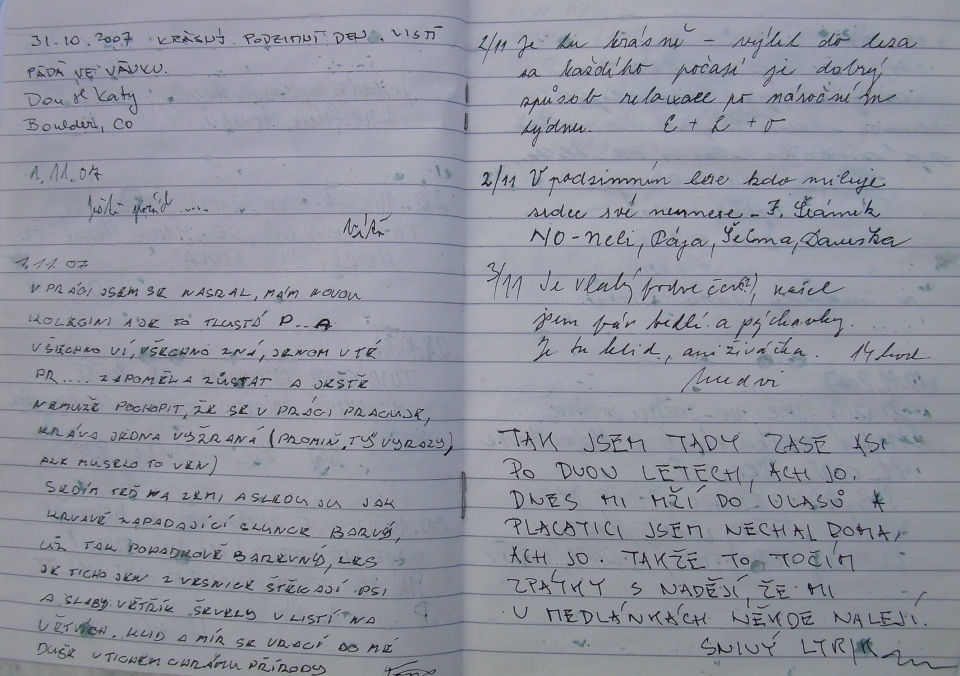 31.10.2007 KRÁSNÝ PODZIMNÍ DEN, LISTÍ
PADÁ VE VÁNKU.
Don & Katy
Boulder, CO
1.11.07
Ještě pořád ....
1.11.07
V PRÁCI JSEM SE NASRAL, MÁM NOVOU
KOLEGINI A JE TO TLUSTÁ P...A
VŠECHNO VÍ, VŠECHNO ZNÁ, JENOM V TÉ
PR.... ZAPOMĚLA ZŮSTAT A JEŠTĚ
NEMUŽE POCHOPIT, ŽE SE V PRÁCI PRACUJE,
KRÁVA JEDNA VYŽRANÁ (PROMIŇ, TY VÝRAZY,
ALE MUSELO TO VEN)
SEDÍM TEĎ NA ZEMI A SLEDUJU JAK
KRVAVĚ ZAPADAJÍCÍ SLUNCE BARVÝ,
UŽ TAK POHÁDKOVĚ BAREVNÝ, LES
JE TICHO JEN Z VESNICE ŠTĚKAJÍ PSI
A SLABÝ VĚTŘÍK ŠEVELÝ V LISTÍ NA
VĚTVÍCH. KLID A MÍR SE VRACÍ DO MÉ
DUŠE V TICHÉM CHRÁMU PŘÍRODY
2/11 Je tu krásně – výlet do lesa
za každého počasí je dobrý
způsob relaxace po náročném
týdnu. E + L + O
2/11 V podzimním lese kdo miluje
srdce své neunese – F. Šrámek
NO-Neli, Pája, Šelma, Danuška
3/11 Je vlahý podvečer(?), našel
jsem pár bedlí a pýchavky.
Je tu klid, ani živáčka. 14 hod
TAK JSEM TADY ZASE ASI
PO DVOU LETECH, ACH JO.
DNES MI MŽÍ DO VLASŮ A
PLACATICI JSEM NECHAL DOMA,
ACH JO. TAKŽE TO TOČÍM
ZPÁTKY S NADĚJÍ, ŽE MI
V MEDLÁNKÁCH NĚKDE NALEJÍ.
SNIVÝ LYRIK